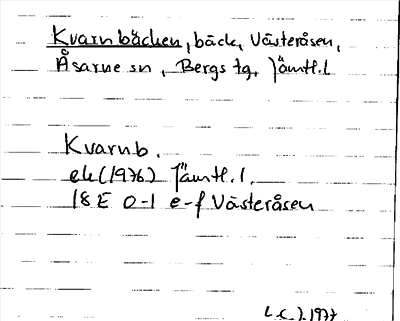 Kvarnbäcken, bäck, Västeråsen,
Åsarne sn, Bergs tg, Jämtl.l
Kvarnb.
ek (1976) Jämtl.l.
18E 0-1 e-f Västeråsen
1977